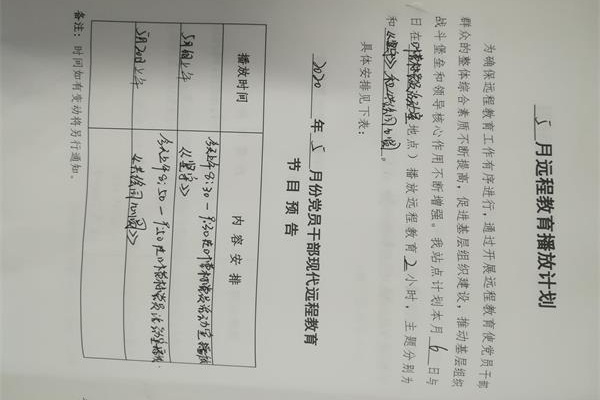 5 月远程教育播放计划
为确保远程教育工作有序进行，通过开展远程教育使党员干部
群众的整体综合素质不断提高，促进基层组织建设，推动基层组织
战斗堡垒和领导核心作用不断增强。我站点计划本月 6 日与
日在 党员活动室（地点）播放远程教育 2 小时，主题分别为
和《坚守》和《共绘同心圆》。
具体安排见下表：
2020 年 5 月份党员干部现代远程教育
节目预告
播放时间 内容安排
5月6日上午 今天上午8:30－9:30在 党员活动室播放
《坚守》
5月20日上午 今天上午8:50－9:50在 党员活动室播放
《共绘同心圆》
备注：时间如有变动将另行通知。